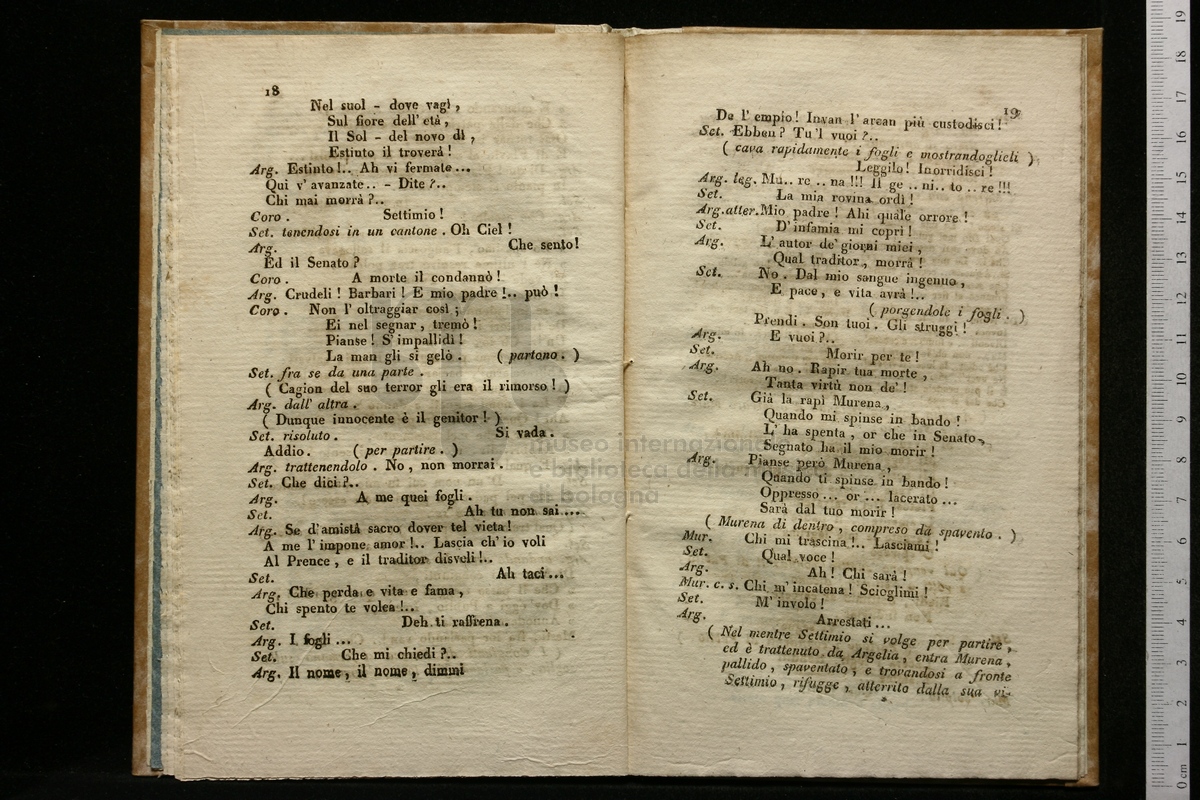 18
Nel suol - dove vagì,
Sul fiore dell' età,
Il Sol - del novo dì,
Estinto il troverà!
Arg. Estinto!.. Ah vi fermate...
Qui v' avanzate.. - Dite?..
Chi mai morrà?..
Coro. Settimio!
Set. tenendosi in un cantone. Oh Ciel!
Arg. Che sento!
Ed il Senato?
Coro. A morte il condannò!
Arg. Crudeli! Barbari! E mio padre!.. può!
Coro. Non l' oltraggiar così;
Ei nel segnar, tremò!
Pianse! S' impallidì!
La man gli si gelò. (partono.)
Set. fra se da una parte.
(Cagion del suo terror gli era il rimorso!)
Arg. dall' altra.
(Dunque innocente è il genitor!)
Set. risoluto. Si vada.
Addio. (per partire.)
Arg. trattenendolo. No, non morrai.
Set. Che dici?..
Arg. A me quei fogli.
Set. Ah tu non sai...
Arg. Se d'amistà sacro dover tel vieta!
A me l' impone amor!.. Lascia ch' io voli
Al Prence, e il traditor disveli!..
Set. Ah taci...
Arg. Che perda e vita e fama,
Chi spento te volea!..
Set. Deh ti raffrena.
Arg. I fogli...
Set. Che mi chiedi?..
Arg. Il nome, il nome, dimmi
19
De l' empio! Invan l' arcan più custodisci!
Set. Ebben? Tu 'l vuoi?..
(cava rapidamente i fogli e mostrandoglieli)
Leggilo! Inorridisci!
Arg. leg. Mu.. re .. na!!! Il ge .. ni.. to .. re!!!
Set. La mia rovina ordì!
Arg. atter. Mio padre! Ahi quale orrore!
Set. D' infamia mi coprì!
Arg. L' autor de' giorni miei,
Qual traditor, morrà!
Set. No. Dal mio sangue ingenuo,
E pace, e vita avrà!..
(porgendole i fogli.)
Prendi. Son tuoi. Gli struggi!
Arg. E vuoi?..
Set. Morir per te!
Arg. Ah no. Rapir tua morte,
Tanta virtù non de'!
Set. Già la rapì Murena,
Quando mi spinse in bando!
L' ha spenta, or che in Senato,
Segnato ha il mio morir!
Arg. Pianse però Murena,
Quando ti spinse in bando!
Oppresso... or... lacerato...
Sarà dal tuo morir!
(Murena di dentro, compreso da spavento.)
Mur. Chi mi trascina!.. Lasciami!
Set. Qual voce!
Arg. Ah! Chi sarà!
Mur. c. s. Chi m' incatena! Scioglimi!
Set. M' involo!
Arg. Arrestati...
(Nel mentre Settimio si volge per partire,
ed è trattenuto da Argelia, entra Murena,
pallido, spaventato; e trovandosi a fronte
Settimio, rifugge, atterrito dalla sua vi-
museo internazionale
e biblioteca della musica
di bologna
0 cm 1 2 3 4 5 6 7 8 9 10 11 12 13 14 15 16 17 18 19